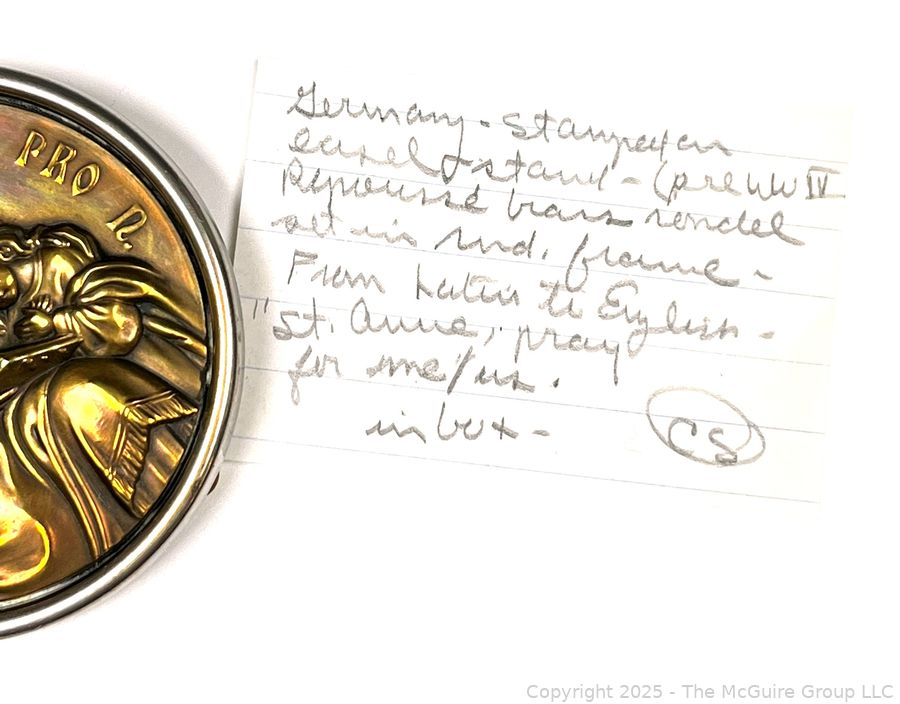 PRO N.
Germany - stamped on
easel stand - (pre WW II
Repoussé brass rondel
set in rnd. frame -
From Latin to English -
"St. Anne, pray
for me/us.
in box -
CS
Copyright 2025 - The McGuire Group LLC